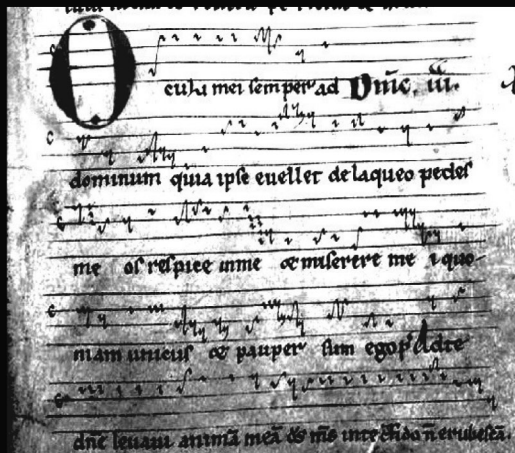 Oculi mei semper ad Dnīc. iii.
dominum quia ipse evellet de laqueo pedes
me os respice inme & miserere me i quo-
niam unicus & pauper sum ego ps Adte
dn̄e levavi animā meā ds̄ ms̄ inte cōfido n̄ erubescā.